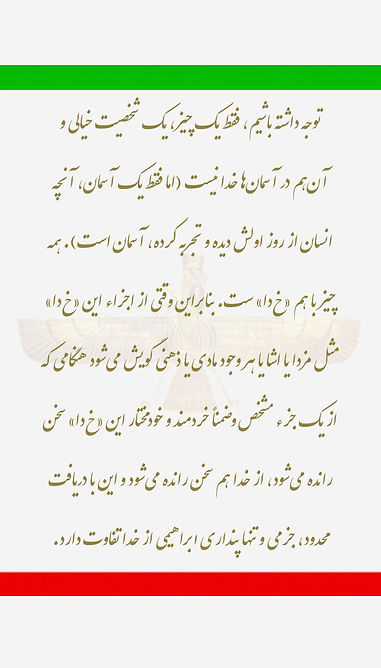 توجه داشته باشیم، فقط یک چیز، یک شخصیت خیالی و
آن‌هم در آسمان‌ها خدا نیست (اما فقط یک آسمان، آنچه
انسان از روز اولش دیده و تجربه کرده، آسمان است). همه
چیز با هم «خ‌دا» ست. بنابراین وقتی از اجزاء این «خ‌دا»
مثل مزدا یا اشا یا هر وجود مادی یا ذهنی گویش می‌شود هنگامی که
از یک جزء مشخص وضمناً خردمند و خودمختار این «خ‌دا» سخن
رانده می‌شود، از خدا هم سخن رانده می‌شود و این با دریافت
محدود، جزمی و تنها پنداری ابراهیمی از خدا تفاوت دارد.